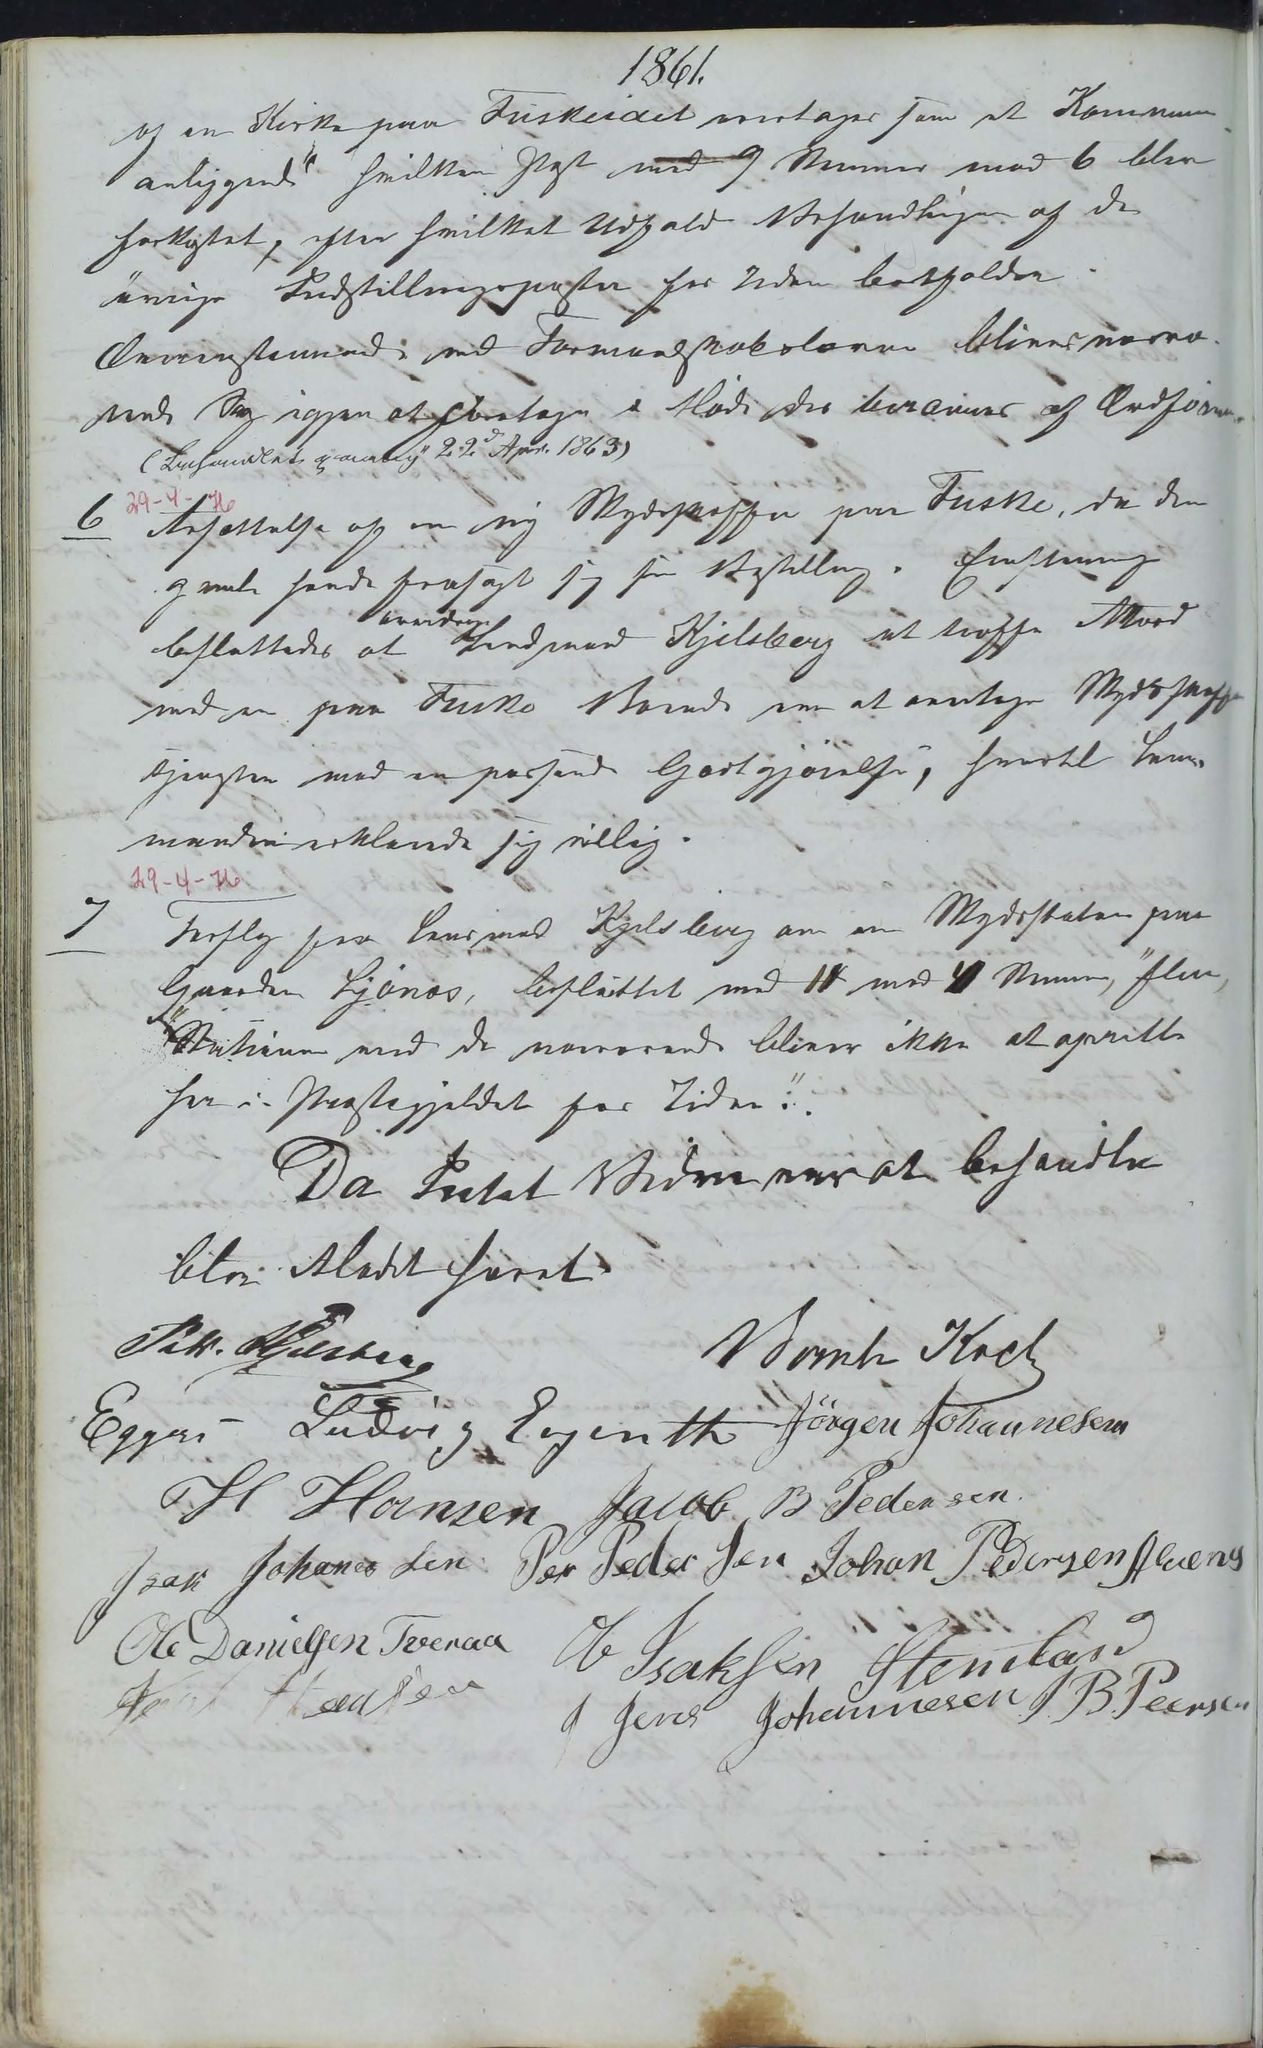 1861.
og en Kirke paa Fuskeidet modtages som et Kommune
anliggende" hvilken Post med 9 Stemmer mod 6 blev
forkastet, efter hvilket Udfald Behandlingen af de
øvrige Indstillingsposter for Tiden bortfalder.
Overensstemmende med Formandskabsloven bliver nærvæ-
rende Sag igjen at foretage i Møde der berammes af Ordføreren.
(Behandlet gaang 22d Apr. 1863)
29-4-76
6 Ansættelse af en ny Skydsskaffer paa Fuske, da den
gamle havde frasagt sig sin Bestilling. Eenstemmig
besluttedes at anmode
Lendsmand Kjelsberg at træffe Akord
med en paa Fuske Boende om at overtage Skydsskaffer
tjenesten mod en passende Godtgjørelse, hvortil Lens-
manden erklærede sig villig.
29-4-76
7 Forslag fra Lensmand Kjelsberg om en Skydsstation paa
Gaarden Ljønæs, besluttet med 11 mod 4 Stemmer, "flere
Stationer end de nærværende bliver ikke at oprette
her i Præstegjeldet for Tiden".
Da Intet videre var at behandle
blev Mødet hævet.
Kjelsberg Bernt Koch
Eggen Ludvig Jörgen Johannesen
H Hansen Jacob B Pedersen
Isak Johanes sen Per Peder sen Johan Pedersen
Ole Danielsen Tveraa Ole Isaksen Stemland
J Jens Johannesen J B. Peersen